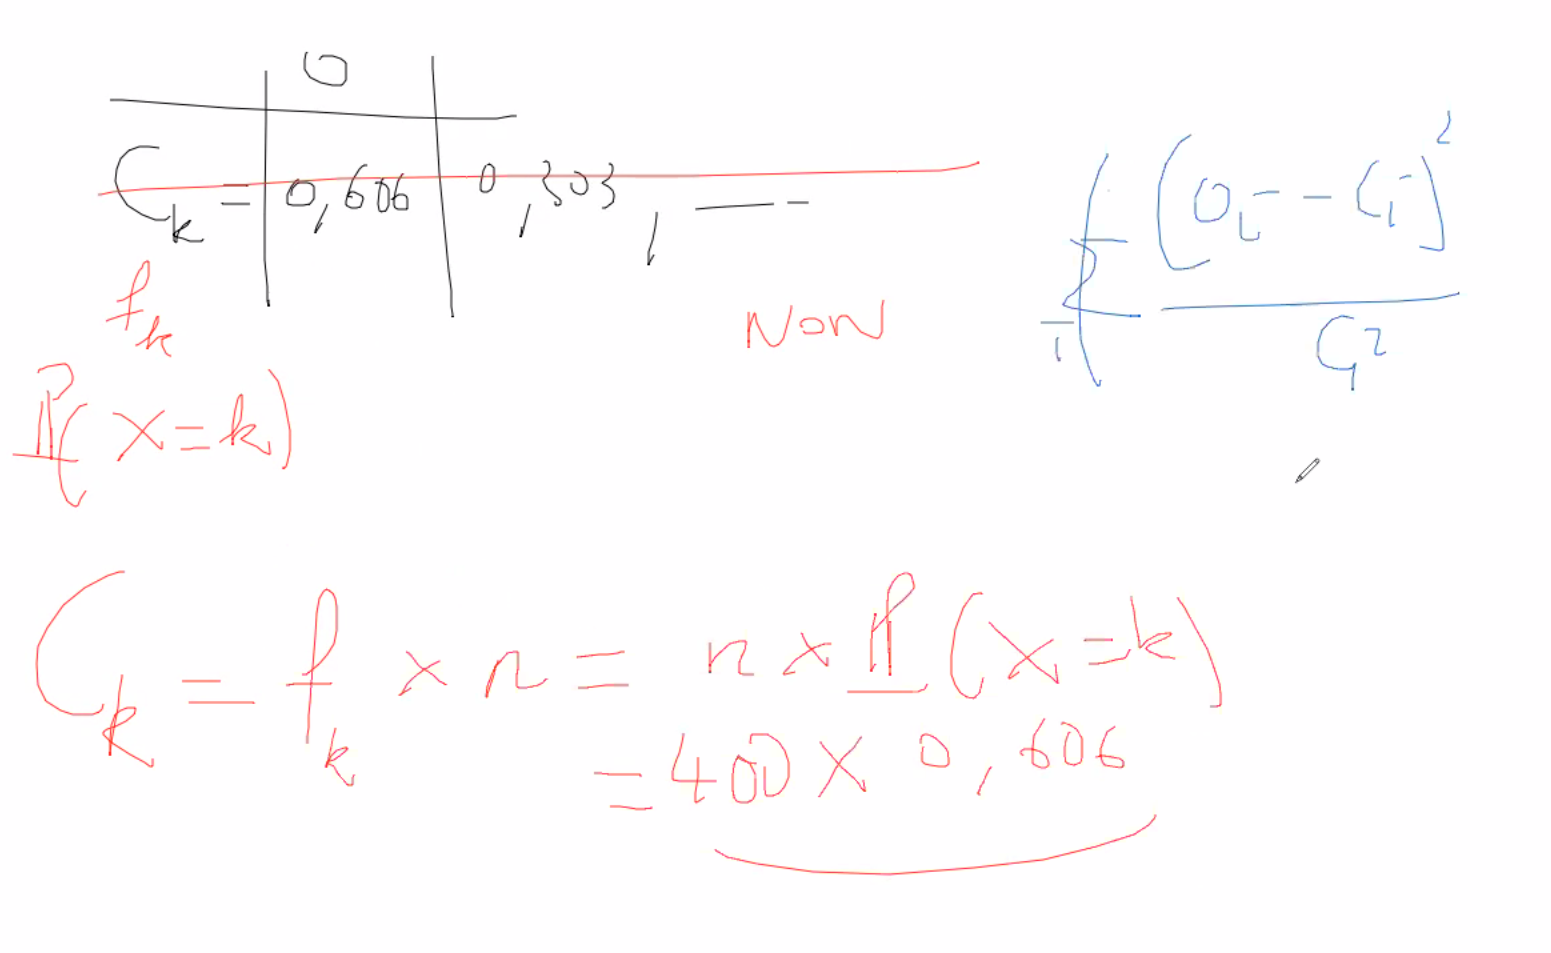 0
C_k = 0,606 0,303, ——-
f_k
NON
P(X=k)
Σ_i (O_i - C_i)^2
C_i^2
C_k = f_k × n = n × P(X=k)
= 400 × 0,606